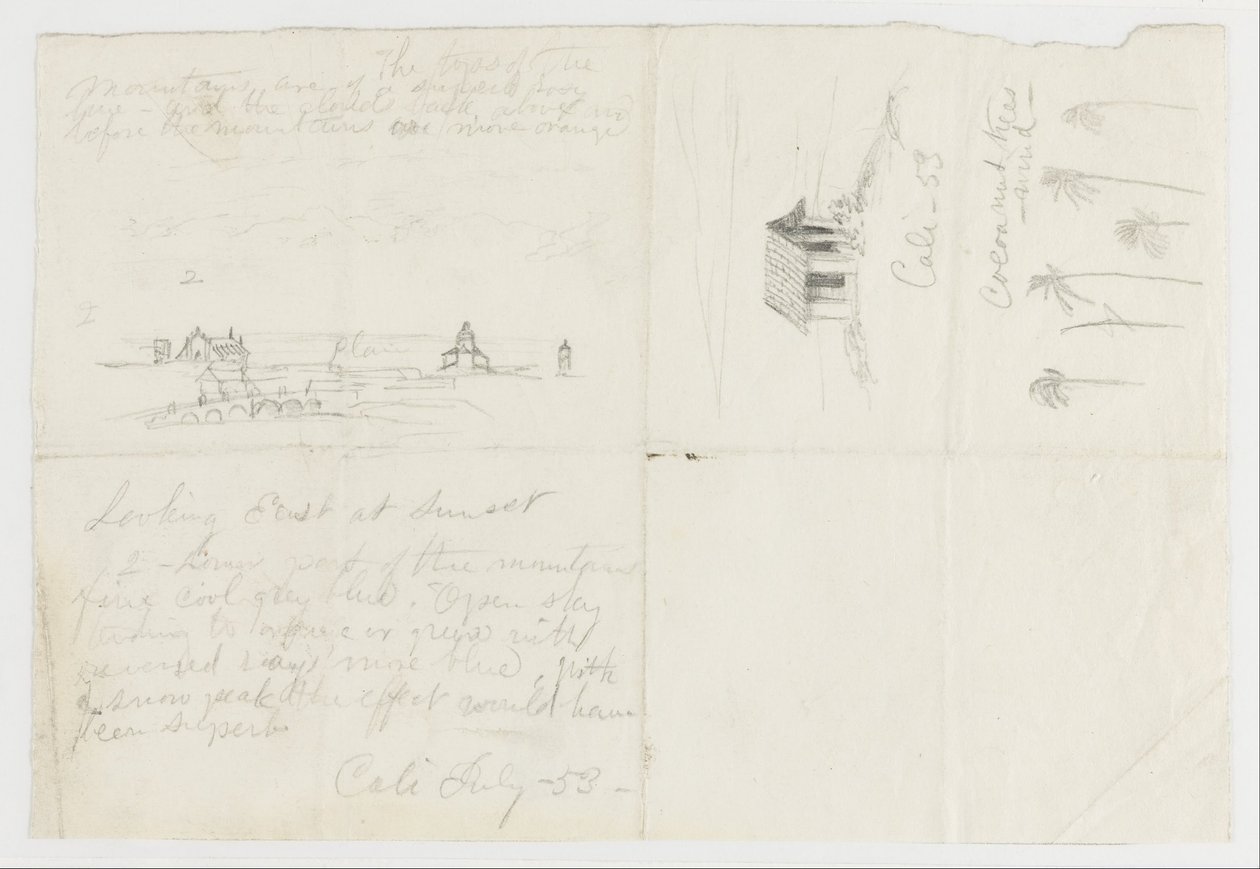 The tops of the
mountains are of a superb rosy
hue - and the clouds back, above and
before the mountains are more orange
2
2
plain
Looking East at Sunset
2 - Lower part of the mountains
fine cool grey blue. Open sky
tending to or green with
reversed rays more blue, with
a snow peak the effect would have
been superb
Cali July - 53 -
Cali - 53
Cocoanut trees
- wind -